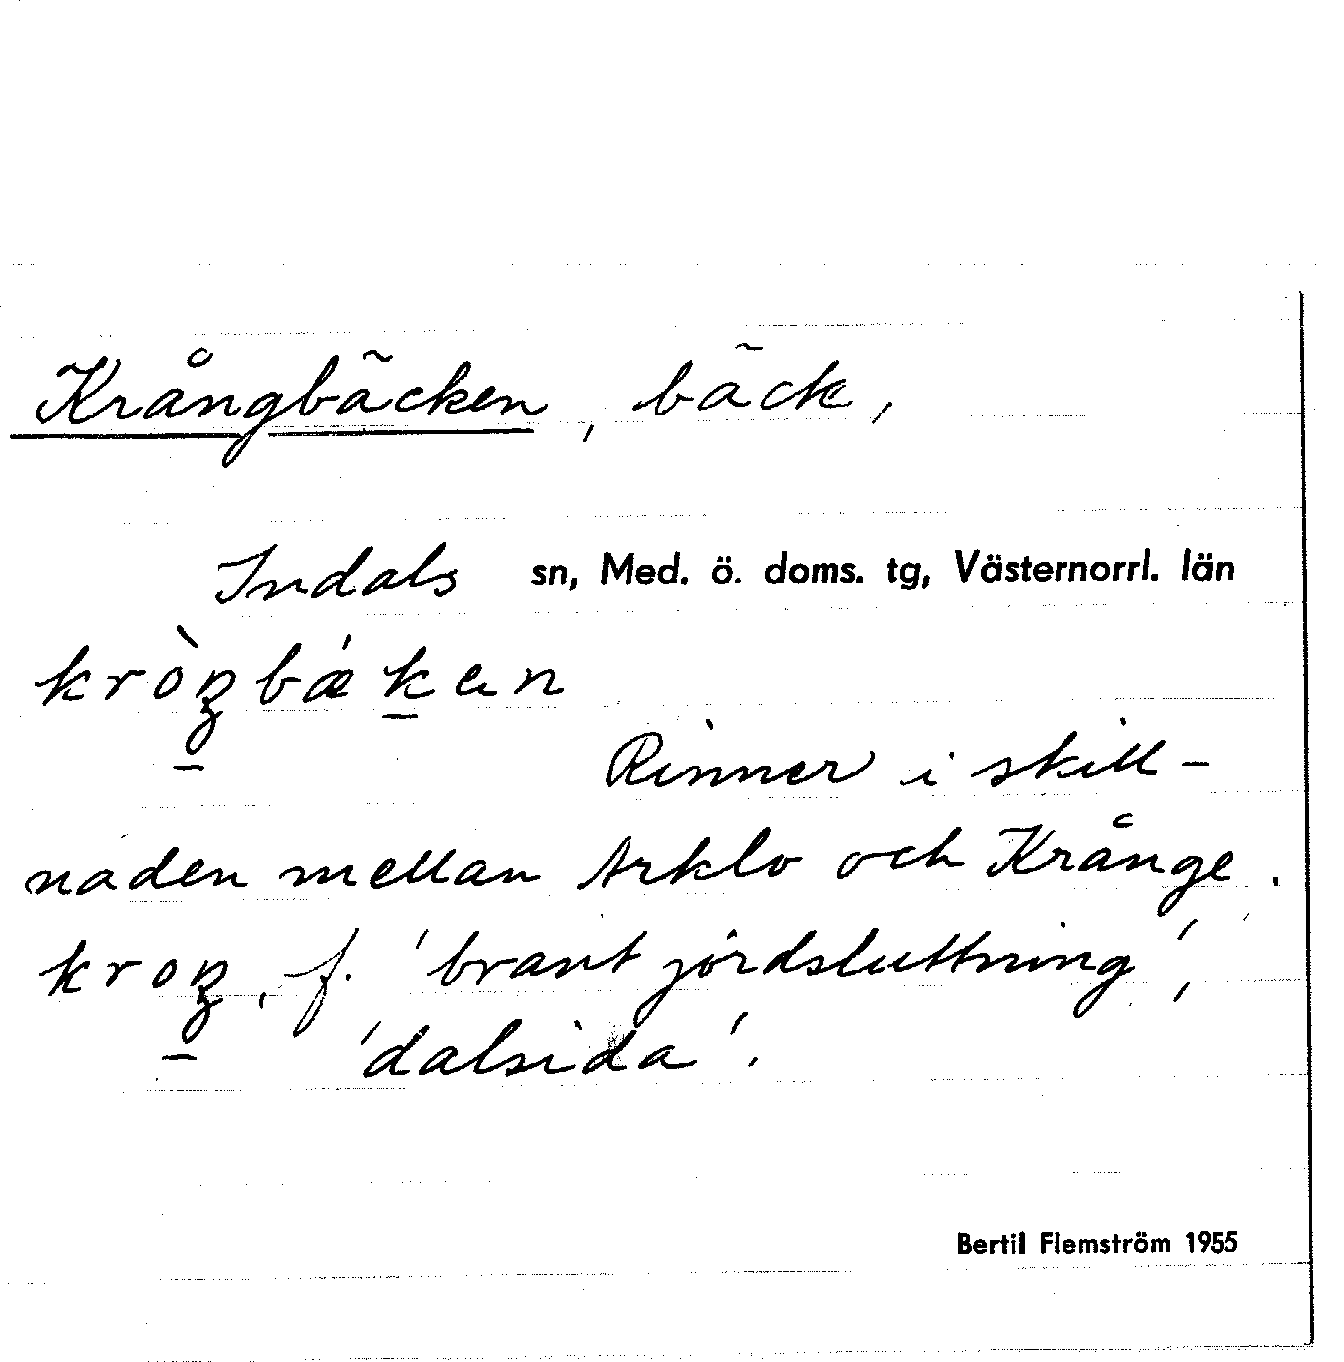 Krångbäcken, bäck,
Indals sn, Med. ö. doms. tg, Västernorrl. län
kròŋbá̱ken
Rinner i skill-
naden mellan Arklo och Krånge.
kroŋ, f. 'brant jordsluttning',
'dalsida'.
Bertil Flemström 1955